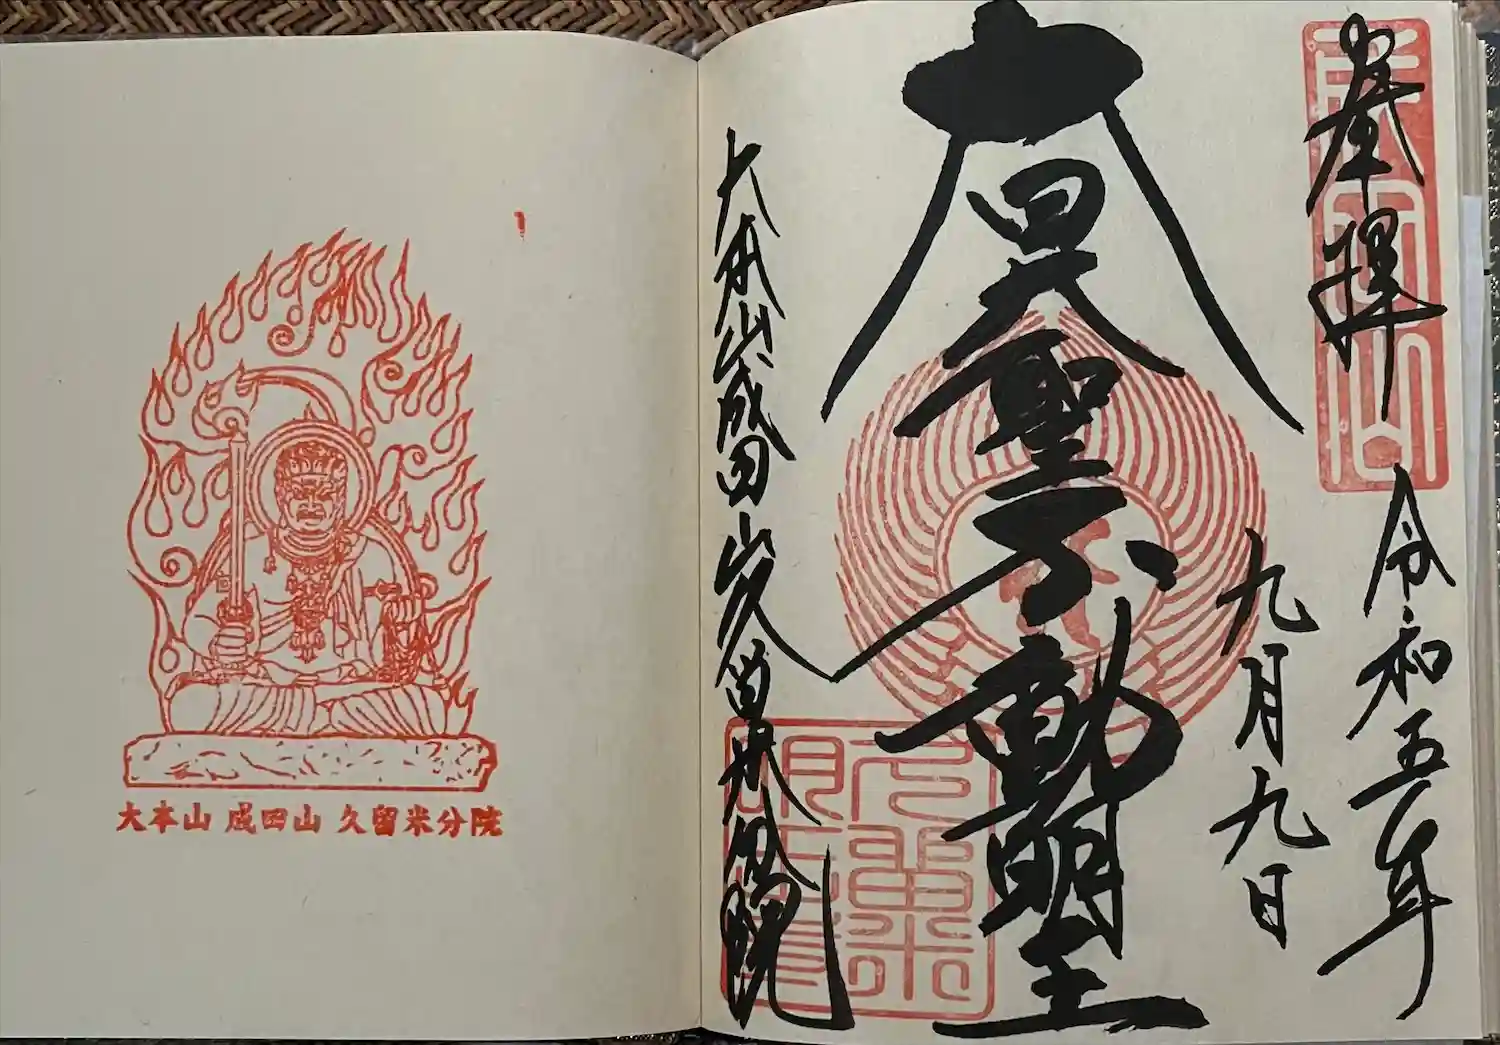 奉拝
成田山
令和五年
九月九日
大日大聖不動明王
大本山成田山久留米分院
大本山 成田山 久留米分院